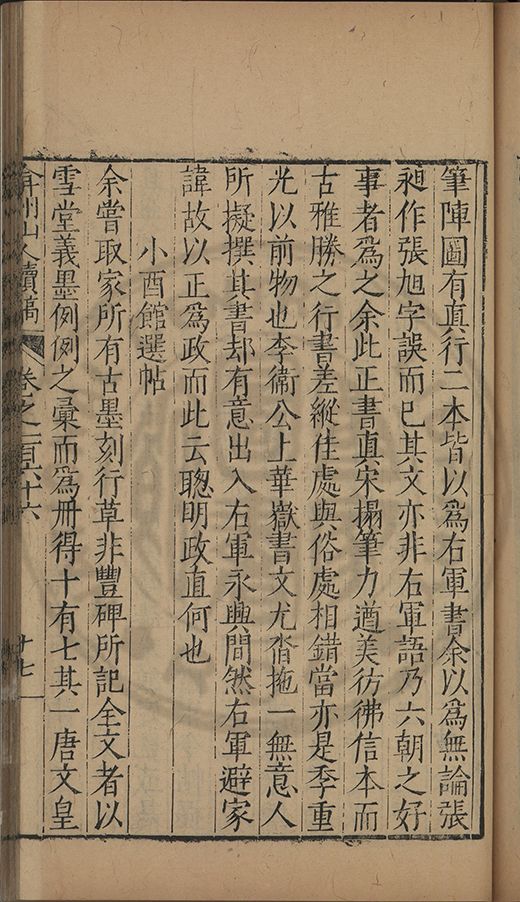 筆陣圖有真行二本皆以爲右軍書余以爲無論張
昶作張旭字誤而已其文亦非右軍語乃六朝之好
事者爲之余此正書真宋搨筆力遒美彷彿信本而
古雅勝之行書差縱住處與俗處相錯當亦是季重
光以前物也李衛公上華嶽書文尤沓拖一無意人
所擬撰其書却有意出入右軍永興間然右軍避家
諱故以正爲政而此云聰明政直何也
小酉館選帖
余嘗取家所有古墨刻行草非豐碑所記全文者以
雪堂義墨例例之彙而爲冊得十有七其一唐文皇
弇州山人續稿 卷之一百六十六 十七